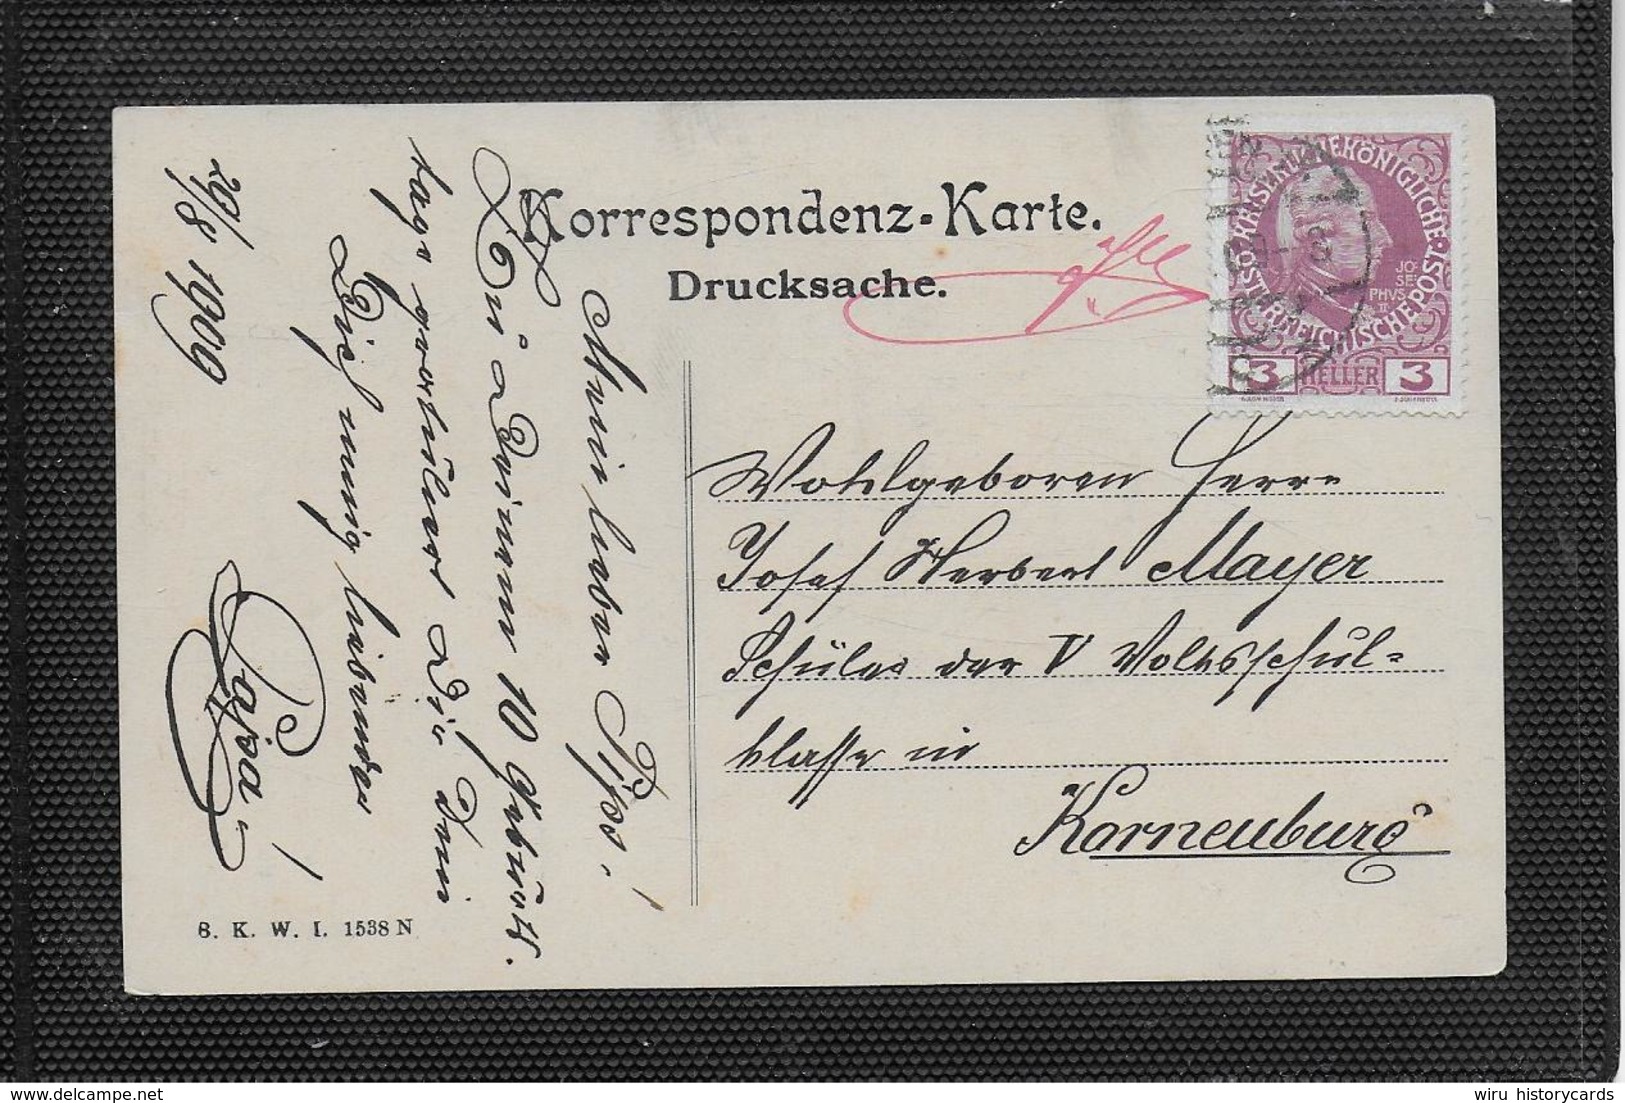 Korrespondenz-Karte.
Drucksache.
KAISERLICHE KÖNIGLICHE
ÖSTERREICHISCHE POST
JO
SE
PHVS
II
3 HELLER 3
Wohlgeboren Herrn
Josef Herbert Mayer
Schüler der V Volksschul-
klasse in
Korneuburg
Mein lieber Pipo!
Zu Deinem 10 Geburts-
tage gratuliert Dir Dein
Dich innig liebender
Papa!
29/8 1909
B. K. W. I. 1538 N
wiru historycards
www.delcampe.net